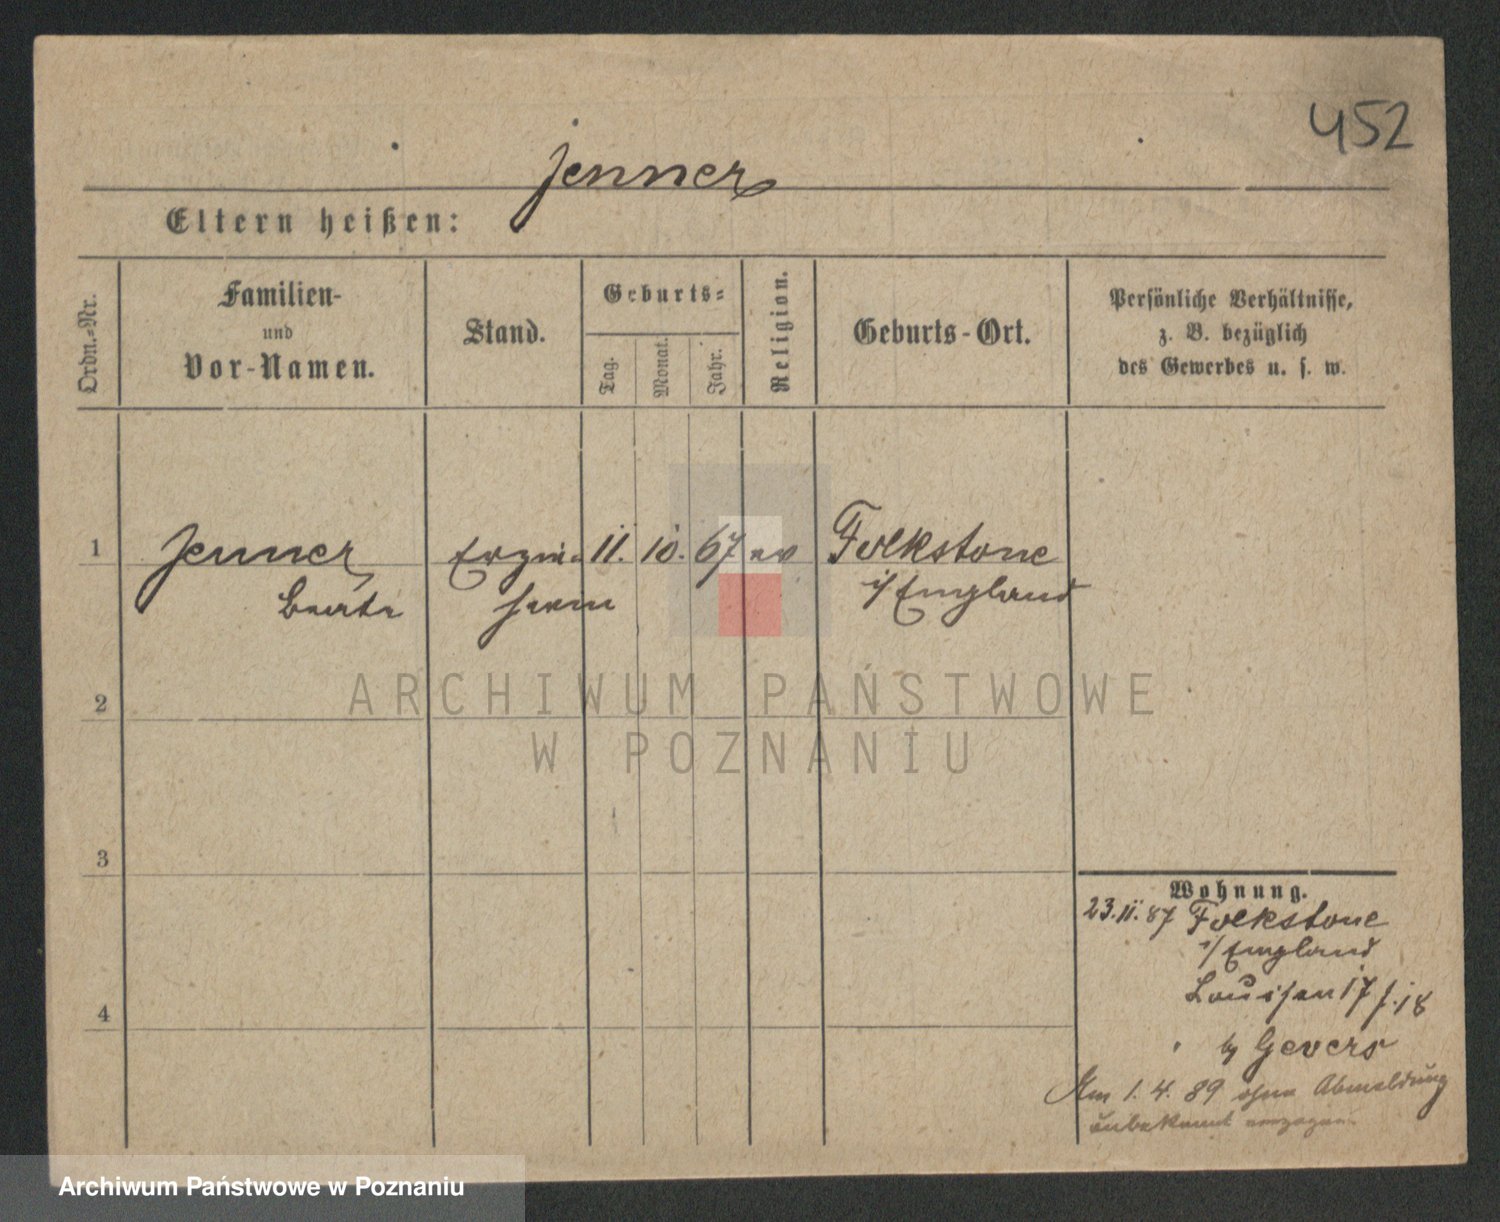 452
Jenner
Eltern heißen:
Ordn.-Nr.
Familien-
und
Vor-Namen.
Stand.
Geburts-
Tag.
Monat.
Jahr.
Religion.
Geburts-Ort.
Persönliche Verhältnisse,
z. B. bezüglich
des Gewerbes u. s. w.
1 Jenner Erzie- 11. 10. 67 ev Folkstone
Beate herin i/ England
2
3
4
Wohnung.
23.11.87 Folkstone
i/ England
Louisen 17
Gevers
Am 1. 4. 89 ohne Abmeldung
unbekannt verzogen
ARCHIWUM PAŃSTWOWE
W POZNANIU
Archiwum Państwowe w Poznaniu